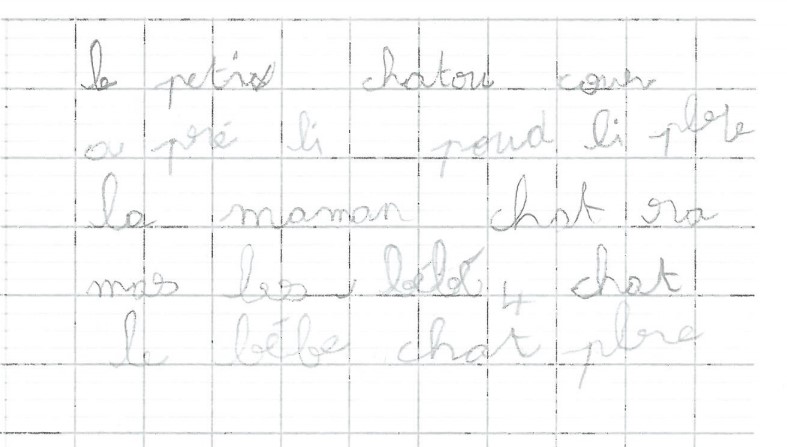 le petis chatou cour
a pré li poud li plere
la maman chat ra
mas les bébé 4 chat
le bébe chat plre